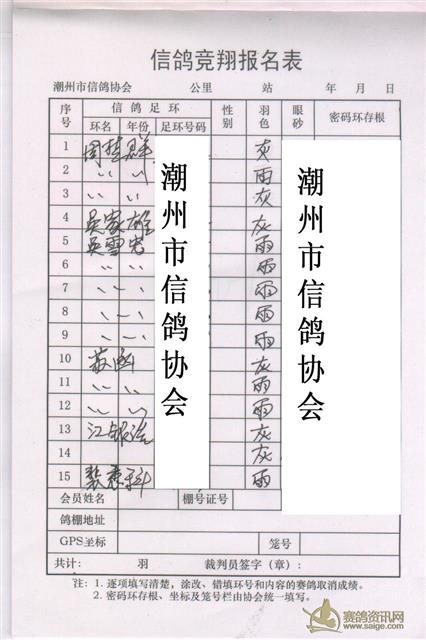 信鸽竞翔报名表
潮州市信鸽协会 公里 站 年 月 日
序号 信鸽足环 性别 羽色 眼砂 密码环存根
环名 年份 足环号码
1 周楚群 灰
2 〃 〃 雨
3 〃 〃 灰
4 吴家雄 灰
5 吴雪宏 雨
6 〃 〃 雨
7 〃 〃 雨
8 〃 〃 雨
9 〃 〃 雨
10 灰
11 〃 〃 雨
12 〃 〃 雨
13 江银 灰
14 灰
15 雨
潮州市信鸽协会
潮州市信鸽协会
会员姓名 棚号证号
鸽棚地址
GPS坐标 笼号
共计: 羽 裁判员签字(章):
注: 1. 逐项填写清楚,涂改、错填环号和内容的赛鸽取消成绩。
2. 密码环存根、坐标及笼号栏由协会统一填写。
赛鸽资讯网
www.saige.com